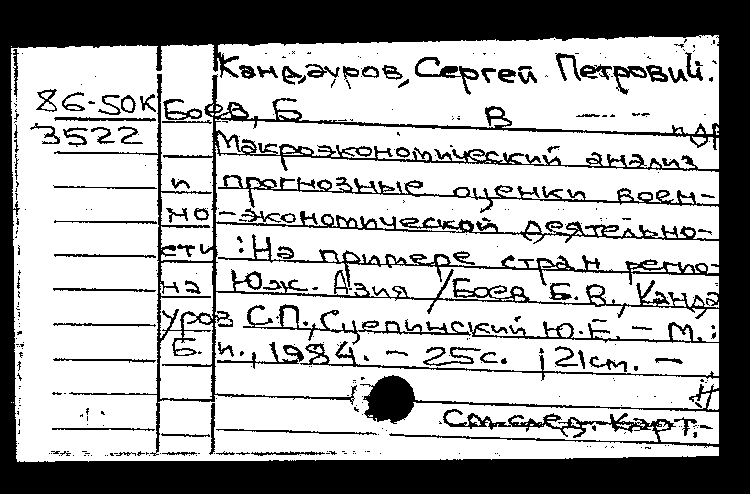 Кандауров, Сергей Петрович.
86-50К Боев, Б В
3522 и др
Макроэкономический анализ
и прогнозные оценки воен-
но-экономической деятельно-
сти : На примере стран регио-
на Юж. Азия / Боев Б.В., Канда
уров С.П., Сцепинский Ю.Е. - М.:
Б. и., 1984. - 25с. ; 21см. -
См.след.карт.